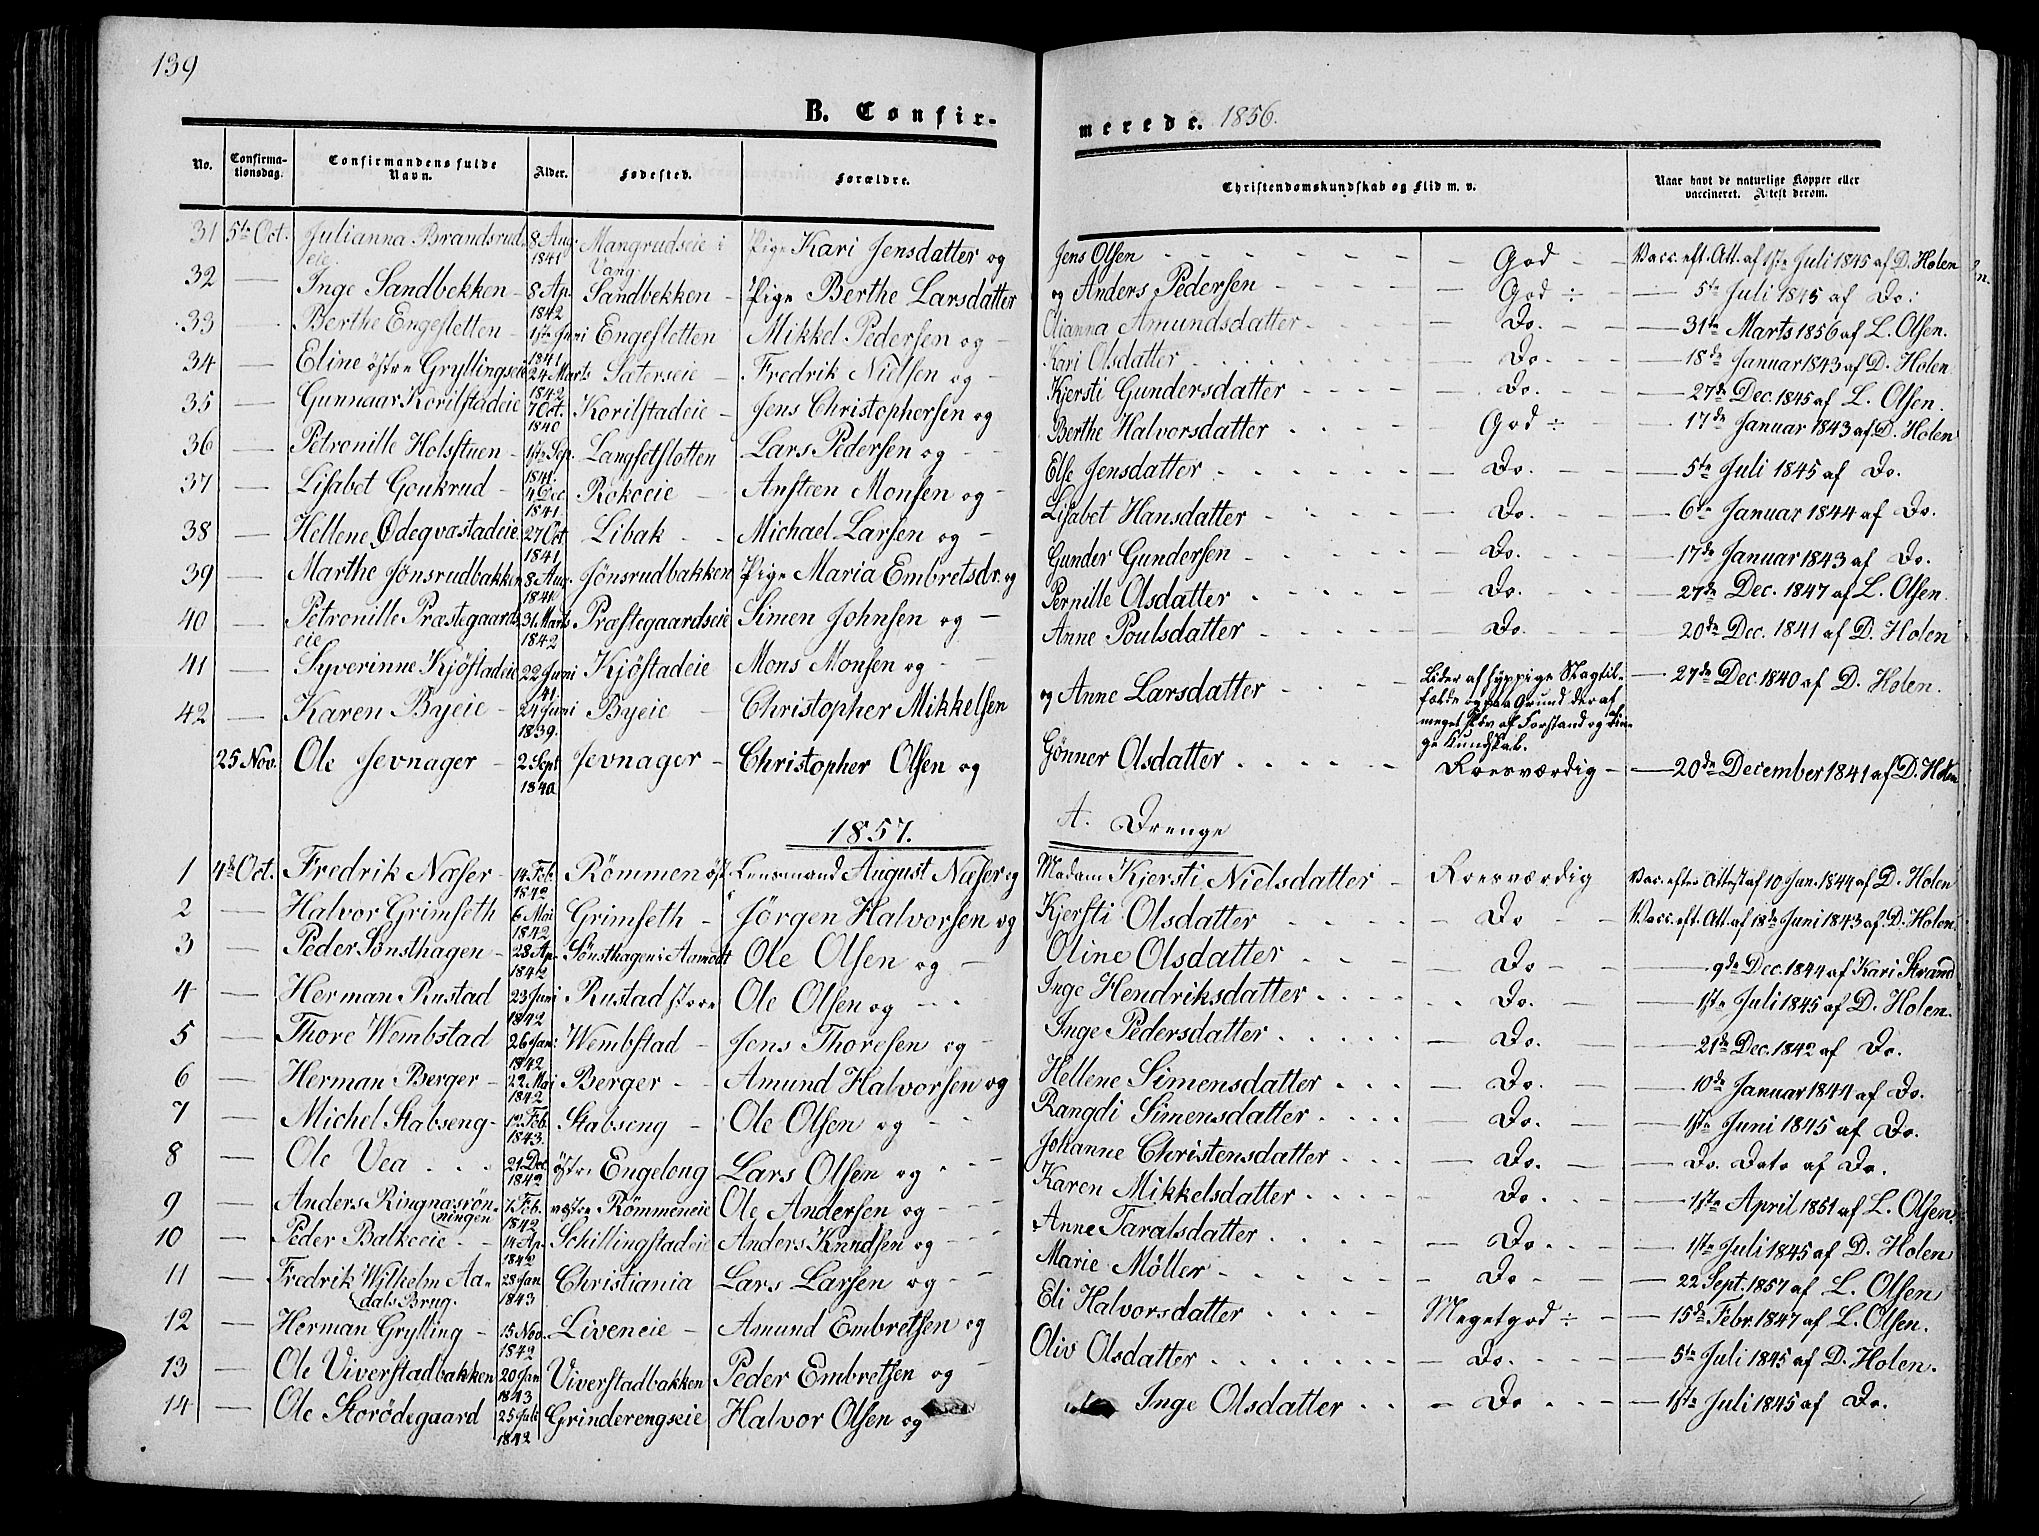 139
B. Confir- merede. 1856.
No. Confirma-tionsdag. Confirmandens fulde Navn. Alder. Fødested. Forældre. Christendomskundskab og Flid m. v. Naar havt de naturlige Kopper eller vaccineret. Attest derom.
31 5te Oct. Julianna Brandsrudeie 8 Aug. 1841 Mangrudseie i Vang. Pige Kari Jensdatter og Jens Olsen - God - Vacc. eft. Att. af 1ste Juli 1845 af D. Holen
32 — Inge Sandbekken - 8 Ap. 1842 Sandbekken - Pige Berthe Larsdatter og Anders Pedersen - God ÷ - 5te Juli 1845 af Do:
33 — Berthe Engesletten - 1ste Juni 1841 Engesletten Mikkel Pedersen og - Olianna Amundsdatter - Do. - 31te Marts 1856 af L. Olsen.
34 — Eline østre Gryllingseie 24 Marts 1842 Sæterseie - Fredrik Nielsen og Kari Olsdatter - Do. - 18de Januar 1843 af D. Holen
35 — Gunnaar Korilstadeie 7 Oct. 1840 Korilstadeie - Jens Christophersen og Kjersti Gundersdatter - Do. - 27de Dec. 1845 af L. Olsen.
36 — Petronille Holsstuen - 1ste Sep. 1841. Langsetslotten Lars Pedersen og - Berthe Halvorsdatter - God ÷ - 17de Januar 1843 af D. Holen
37 — Lisabet Goukrud - 4 Dec. 1841. Rokoeie - Ansteen Monsen og - Else Jensdatter - Do. - 5te Juli 1845 af Do.
38 — Hellene Ødeqvastadeie 27 Oct. 1841 Libak - Michael Larsen og - Lisabet Hansdatter - Do. - 6te Januar 1844 af Do.
39 — Marthe Jønsrudbakken 8 Aug. 1841 Jønsrudbakken Pige Maria Embretsdr. og Gunder Gundersen - Do. - 17de Januar 1843 af Do.
40 — Petronille Præstegaardseie 31 Marts 1842 Præstegaardseie Simen Johnsen og - Pernille Olsdatter - Do. - 27de Dec. 1847 af L. Olsen.
41 — Syverinne Kjøstadeie 22 Juni 41. Kjøstadeie Mons Monsen og - Anne Poulsdatter - Do. - 20de Dec. 1841 af D. Holen
42 — Karen Byeie - 24 Juni 1839. Byeie - Christopher Mikkelsen og Anne Larsdatter - Lider af hyppige Slagtilfælde og paa Grund deraf meget sløv af Forstand og ringe Kundskab. - 27de Dec. 1840 af D. Holen.
25 Nov. Ole Jevnager - 2 Sept 1840 Jevnager - Christopher Olsen og Gønner Olsdatter - Roesværdig - 20de December 1841 af D. Holen
1857. A. Drenge
1 4de Oct. Fredrik Næser - 14 Feb. 1842 Rømmen øst. Lensmand August Næser og Madam Kjersti Nielsdatter - Roesværdig Vac. efter Attest af 10 Jan. 1844 af D. Holen
2 — Halvor Grimseth 6 Mai 1842 Grimseth - Jørgen Halvorsen og Kjersti Olsdatter - Do - Vacc. eft. Att. af 18de Juni 1843 af D. Holen.
3 — Peder Sønsthagen - 28 Ap. 1842 Sønsthagen i Aamodt Ole Olsen og - Oline Olsdatter - Do - 9de Dec. 1844 af Kari Strand
4 — Herman Rustad 23 Juni 1842 Rustad store Ole Olsen og - Inge Hendriksdatter - Do. - 1ste Juli 1845 af D. Holen.
5 — Thore Wembstad 26 Jan: 1842 Wembstad - Jens Thoresen og - Inge Pedersdatter - Do. - 21de Dec. 1842 af Do.
6 — Herman Berger - 22 Mai 1842 Berger - Amund Halvorsen og Hellene Simensdatter - Do. - 10de Januar 1844 af Do.
7 — Michel Stabseng - 12 Feb. 1843. Stabseng - Ole Olsen og - Rangdi Simensdatter - Do. - 1ste Juni 1845 af Do.
8 — Ole Vea - 21 Dec. 1842 østre Engelong Lars Olsen og - Johanne Christensdatter - Do. - Do. Dato af Do.
9 — Anders Ringnæsrønningen 7 Feb. 1842 vestre Rømmeneie Ole Andersen og - Karen Mikkelsdatter - Do. - 1ste April 1851 af L. Olsen.
10 — Peder Balkeeie - 14 Ap. 1842 Schillingstadeie Anders Knudsen og - Anne Taralsdatter - Do. - 1ste Juli 1845 af D. Holen
11 — Fredrik Wilhelm Aadals Brug. 28 Jan 1843 Christiania Lars Larsen og - Marie Møller - Do - 22 Sept. 1857 af L. Olsen
12 — Herman Grylling - 15 Nov. 1842 Liveneie - Amund Embretsen og Eli Halvorsdatter - Megetgod ÷ - 15de Febr 1847 af L. Olsen.
13 — Ole Viverstadbakken 20 Jan 1843 Viverstadbakken Peder Embretsen og - Oliv Olsdatter - Do. - 5te Juli 1845 af D. Holen.
14 — Ole Storødegaard 25 Juli 1842 Grinderengseie Halvor Olsen og Inge Olsdatter - Do - 1ste Juli 1845 af Do.